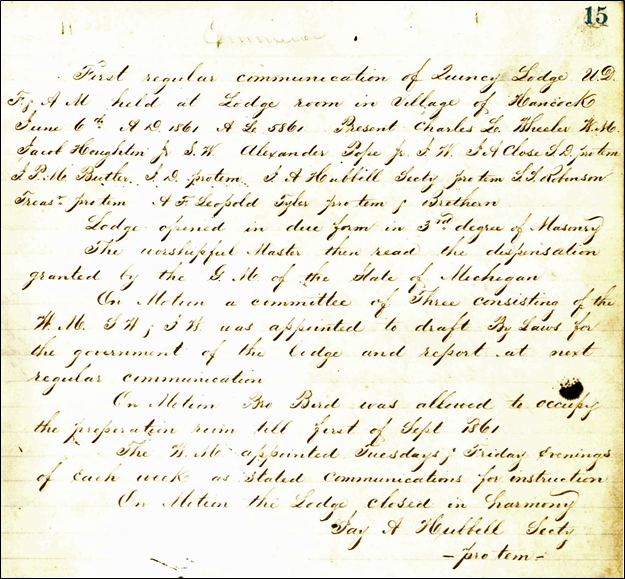 15
First regular communication of Quincy Lodge U.D.
F & A M held at Lodge room in Village of Hancock
June 6th A D. 1861 A L. 5861 Present Charles L. Wheeler W.M.
Jacob Houghton Jr S.W. Alexander Pope Jr J.W. J A Close S D. protem
J P. M Butler J. D. protem. J A Hubbell Secty. protem S. S. Robinson
Treasr protem A F. Leopold Tyler pro tem & Brethern
Lodge opened in due form in 3rd degree of Masonry
The worshipful Master then read the dispensation
granted by the G. M. of the State of Michigan
On Motion a committee of Three consisting of the
W. M. S W & J W. was appointed to draft By Laws for
the government of the lodge and report at next
regular communication
On Motion Bro Bird was allowed to occupy
the preperation room till first of Sept 1861
The W. M. appointed Tuesdays & Friday Evenings
of each week as Stated Communications for instruction
On Motion the Lodge closed in harmony
Jay A Hubbell Secty
- pro tem -